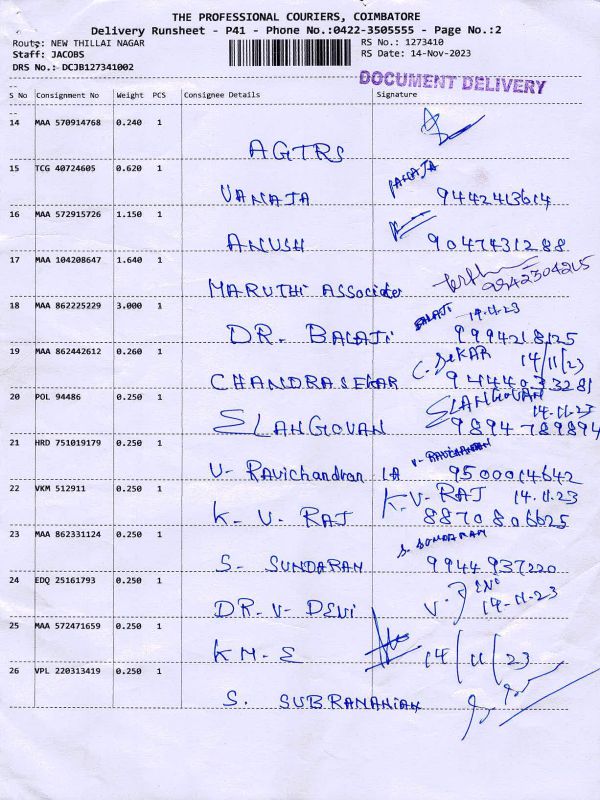 THE PROFESSIONAL COURIERS, COIMBATORE
Delivery Runsheet - P41 - Phone No.:0422-3505555 - Page No.:2
Route: NEW THILLAI NAGAR RS No.: 1273410
Staff: JACOBS RS Date: 14-Nov-2023
DRS No.: DCJB127341002
DOCUMENT DELIVERY
S No Consignment No Weight PCS Consignee Details Signature
14 MAA 570914768 0.240 1
AGTRS
15 TCG 40724605 0.620 1
VANAJA VANAJA 9442413614
16 MAA 572915726 1.150 1
ANUSH 9047431288
17 MAA 104208647 1.640 1
MARUTHI Associates
18 MAA 862225229 3.000 1
DR- BALAJI BALAJI 9994218125
19 MAA 862442612 0.260 1
CHANDRASEKAR C. SEKAR 14/11/23 9444033281
20 POL 94486 0.250 1
ELANGOVAN ELANGOVAN 14-11-23 9894789894
21 HRD 751019179 0.250 1
V- Ravichandran V- RAVICHANDRAN 9500014642
22 VKM 512911 0.250 1
K- V- RAJ K. V- RAJ 14.11.23 8870806625
23 MAA 862331124 0.250 1
S- SUNDARAN S. SUNDARAN 9944937220
24 EDQ 25161793 0.250 1
DR-V- DEVI 14-11-23
25 MAA 572471659 0.250 1
KM-E 14/11/23
26 VPL 220313419 0.250 1
S. SUBRANANIAN